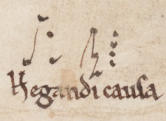 Negandi causa